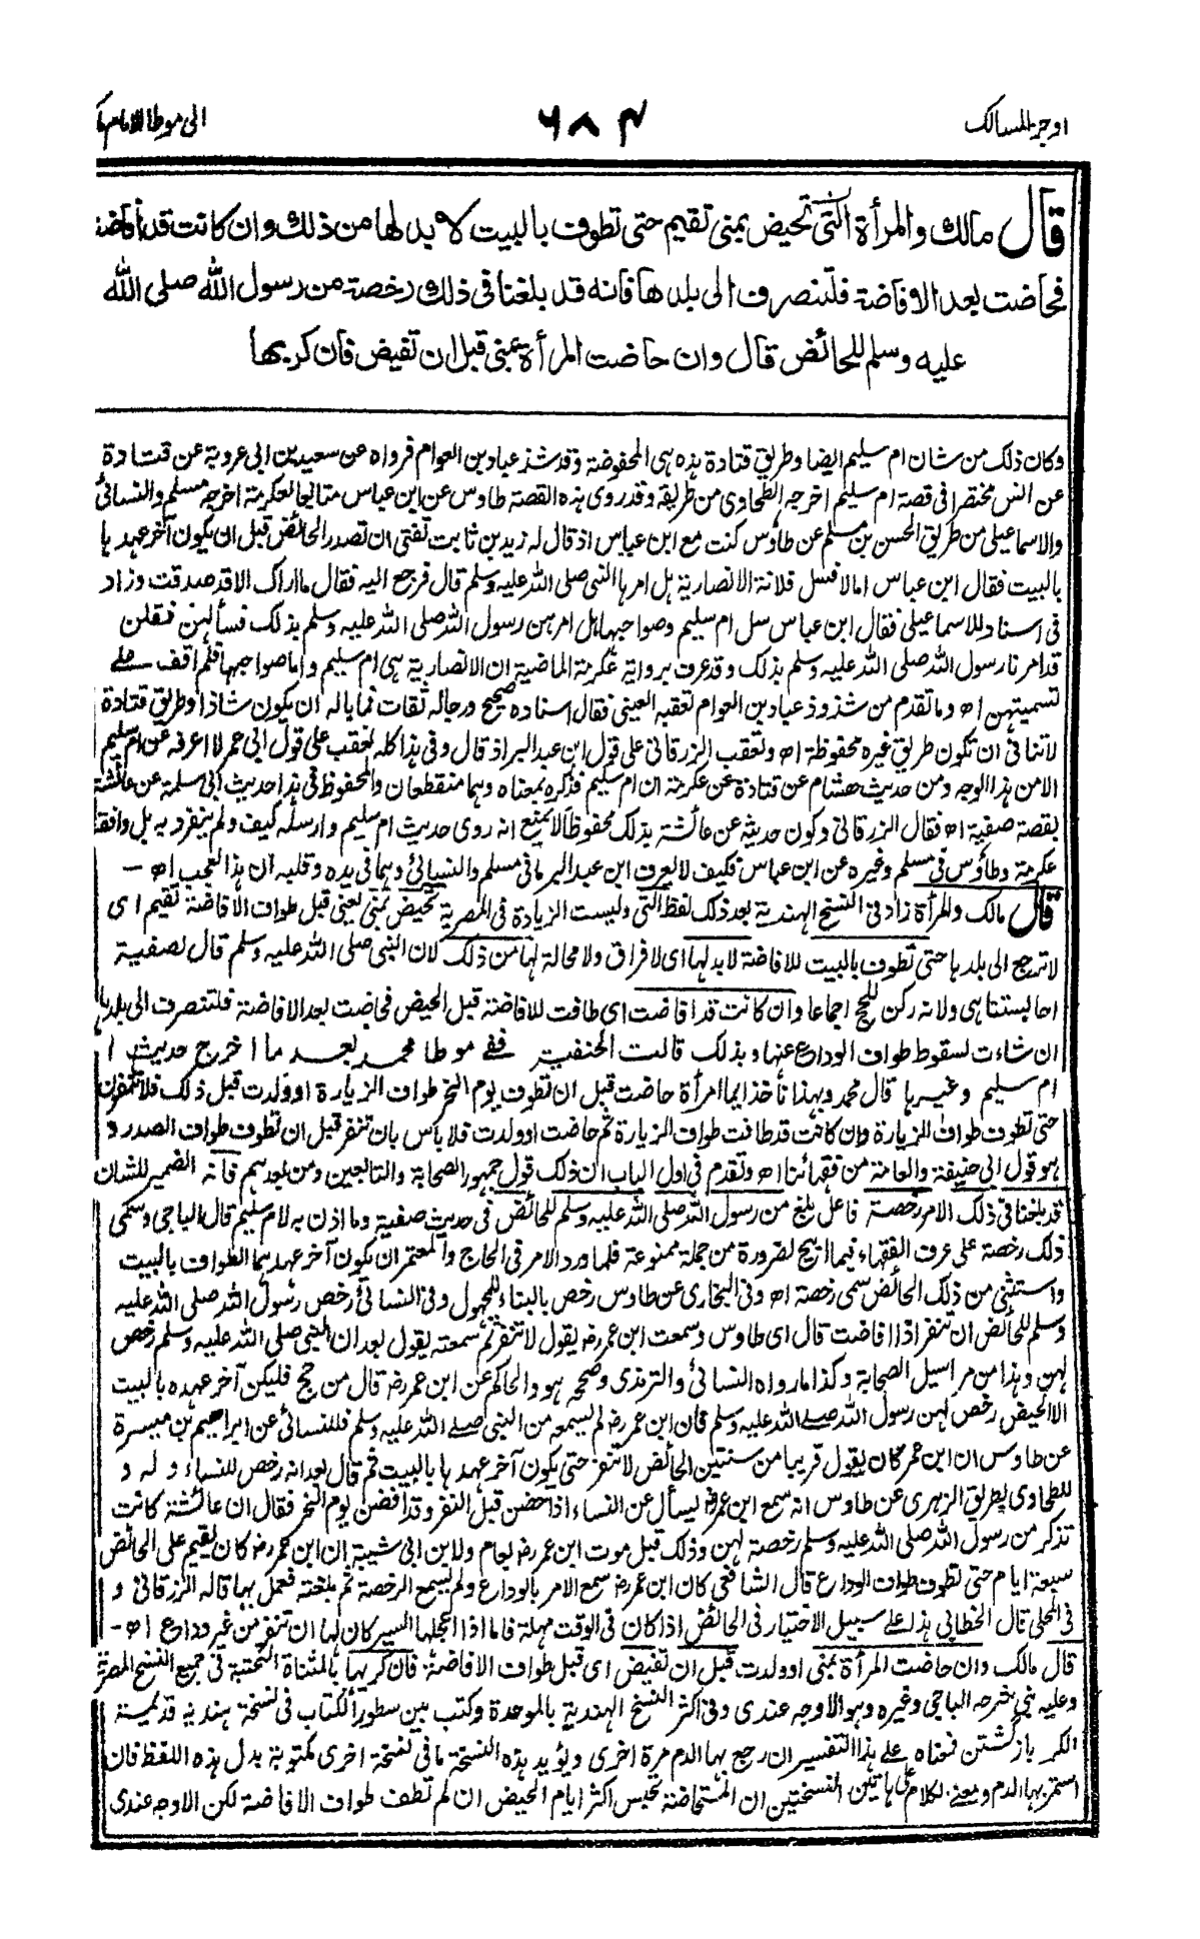 اوجز المسالك
٦٨٣
الى موطا الامام ما
قال مالك والمرأة التى تحيض بمنى تقيم حتى تطوف بالبيت لا بد لها من ذلك وان كانت قد أفاضت
فحاضت بعد الافاضة فلتنصرف الى بلدها فانه قد بلغنا فى ذلك رخصة من رسول الله صلى الله
عليه وسلم للحائض قال وان حاضت المرأة بمنى قبل ان تفيض فان كريها
وكان ذلك من شان ام سليم ايضا وطريق قتادة هذه هى المحفوظة وقد شذ عباد بن العوام فرواه عن سعيد بن ابى عروبة عن قتادة
عن انس مختصرا فى قصة ام سليم اخرجه الطحاوى من طريقه وقد روى هذه القصة طاوس عن ابن عباس متابعا لعكرمة اخرجه مسلم والنسائى
والاسماعيلى من طريق الحسن بن مسلم عن طاؤس كنت مع ابن عباس اذ قال له زيد بن ثابت تفتى ان تصدر الحائض قبل ان يكون آخر عهد ها
بالبيت فقال ابن عباس اما لا فسل فلانة الانصارية هل امرها النبى صلى الله عليه وسلم قال فرجع اليه فقال ما اراك الا قد صدقت وزاد
فى اسناد للاسماعيلى فقال ابن عباس سل ام سليم وصواحبها هل امرهن رسول الله صلى الله عليه وسلم بذلك فسألهن فقلن
قد امرنا رسول الله صلى الله عليه وسلم بذلك وقد عرف برواية عكرمة الماضية ان الانصارية هى ام سليم واما صواحبها فلم اقف على
تسميتهن اه وما تقدم من شذوذ عباد بن العوام تعقبه العينى فقال اسناده صحيح ورجاله ثقات فما باله ان يكون شاذا وطريق قتادة
لا تنافى ان تكون طريق غيره محفوظة اه وتعقب الزرقانى على قول ابن عبد البر اذ قال وفى هذا كله تعقب على قول ابى عمر لا اعرفه عن ام سليم
الا من هذا الوجه ومن حديث هشام عن قتادة عن عكرمة ان ام سليم فذكره بمعناه وهما منقطعان والمحفوظ فى هذا حديث ابى سلمة عن عائشة
بقصة صفية اه فقال الزرقانى وكون حديثه عن عائشة بذلك محفوظا لا يمنع انه روى حديث ام سليم وارسله كيف ولم ينفرد به بل وافقه
عكرمة وطاؤس فى مسلم وغيره عن ابن عباس فكيف لا يعرف ابن عبد البر ما فى مسلم والنسائى وهما فى يده وقلبه ان هذا لعجب اه -
قال مالك والمرأة زاد فى النسخ الهندية بعد ذلك لفظ التى وليست الزيادة فى المصرية تحيض بمنى يعنى قبل طواف الافاضة تقيم اى
لا ترجع الى بلدها حتى تطوف بالبيت للافاضة لا بد لها اى لا فراق ولا محالة لها من ذلك لان النبى صلى الله عليه وسلم قال لصفية
احابستنا هى ولانه ركن للحج اجماعا وان كانت قد افاضت اى طافت للافاضة قبل الحيض فحاضت بعد الافاضة فلتنصرف الى بلدها
ان شاءت لسقوط طواف الوداع عنها وبذلك قالت الحنفية ففى موطا محمد بعد ما اخرج حديث ا
ام سليم وغيرها قال محمد وبهذا نأخذ ايما امرأة حاضت قبل ان تطوف يوم النحر طواف الزيارة او ولدت قبل ذلك فلا تنفرن
حتى تطوف طواف الزيارة وان كانت قد طافت طواف الزيارة ثم حاضت او ولدت فلا باس بان تنفر قبل ان تطوف طواف الصدر و
هو قول ابى حنيفة والعامة من فقهائنا اه وتقدم فى اول الباب ان ذلك قول جمهور الصحابة والتابعين ومن بعدهم فانه الضمير للشان
قد بلغنا فى ذلك الامر رخصة فاعل بلغ من رسول الله صلى الله عليه وسلم للحائض فى حديث صفية وما اذن به لام سليم قال الباجى وسمى
ذلك رخصة على عرف الفقهاء فيما ابيح لضرورة من جملة ممنوعة فلما ورد الامر فى الحاج والمعتمر ان يكون آخر عهدهما الطواف بالبيت
واستثنى من ذلك الحائض سمى رخصة اه وفى البخارى عن طاوس رخص بالبناء للمجهول وفى النسائى رخص رسول الله صلى الله عليه
وسلم للحائض ان تنفر اذا افاضت قال اى طاوس وسمعت ابن عمر رض يقول لا تنفر ثم سمعته يقول بعد ان النبى صلى الله عليه وسلم رخص
لهن وهذا من مراسيل الصحابة وكذا ما رواه النسائى والترمذى وصححه هو والحاكم عن ابن عمر رض قال من حج فليكن آخر عهده بالبيت
الا الحيض رخص لهن رسول الله صلى الله عليه وسلم فان ابن عمر رض لم يسمعه من النبى صلى الله عليه وسلم فللنسائى عن ابراهيم بن ميسرة
عن طاوس ان ابن عمر كان يقول قريبا من سنتين الحائض لا تنفر حتى يكون آخر عهدها بالبيت ثم قال بعد انه رخص للنساء وله و
للطحاوى بطريق الزهرى عن طاوس انه سمع ابن عمر رض يسأل عن النساء اذا حضن قبل النفر وقد افضن يوم النحر فقال ان عائشة كانت
تذكر من رسول الله صلى الله عليه وسلم رخصة لهن وذلك قبل موت ابن عمر رض بعام ولابن ابى شيبة ان ابن عمر رض كان يقيم على الحائض
سبعة ايام حتى تطوف طواف الوداع قال الشافعى كان ابن عمر رض سمع الامر بالوداع ولم يسمع الرخصة ثم بلغته فعمل بها قاله الزرقانى و
فى المحلى قال الخطابى هذا على سبيل الاختيار فى الحائض اذا كان فى الوقت مهلة فاما اذا اعجلها السير كان لها ان تنفر من غير وداع اه -
قال مالك وان حاضت المرأة بمنى او ولدت قبل ان تفيض اى قبل طواف الافاضة فان كريها بالمثناة التحتية فى جميع النسخ المصرية
وعليه بنى شرحه الباجى وغيره وهو الاوجه عندى وفى اكثر النسخ الهندية بالموحدة وكتب بين سطور الكتاب فى نسخة هندية قديمة
الكر بازگشتن فمعناه على هذا التفسير ان رجع بها الدم مرة اخرى ويؤيد هذه النسخة ما فى نسخة اخرى مكتوبة بدل هذه اللفظ فان
استمر بها الدم ومعنى الكلام على هاتين النسختين ان المستحاضة تحبس اكثر ايام الحيض ان لم تطف طواف الافاضة لكن الاوجه عندى